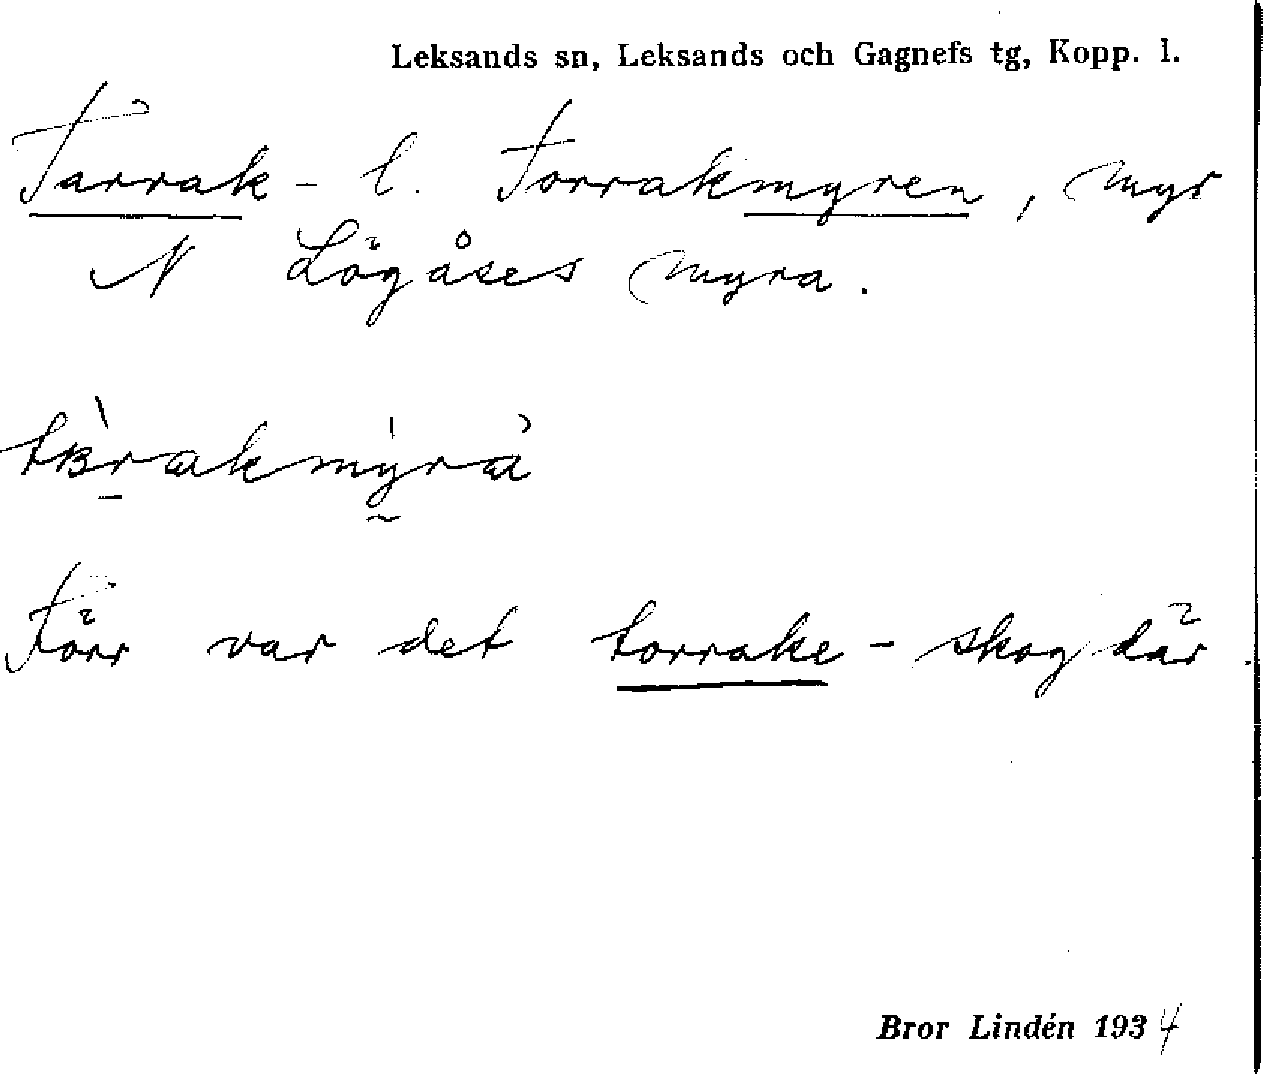 Leksands sn, Leksands och Gagnefs tg, Kopp. l.
Tarrak- l. Torrakmyren, myr
N Lögåses myra.
Förr var det torrake-skog där.
Bror Lindén 1934